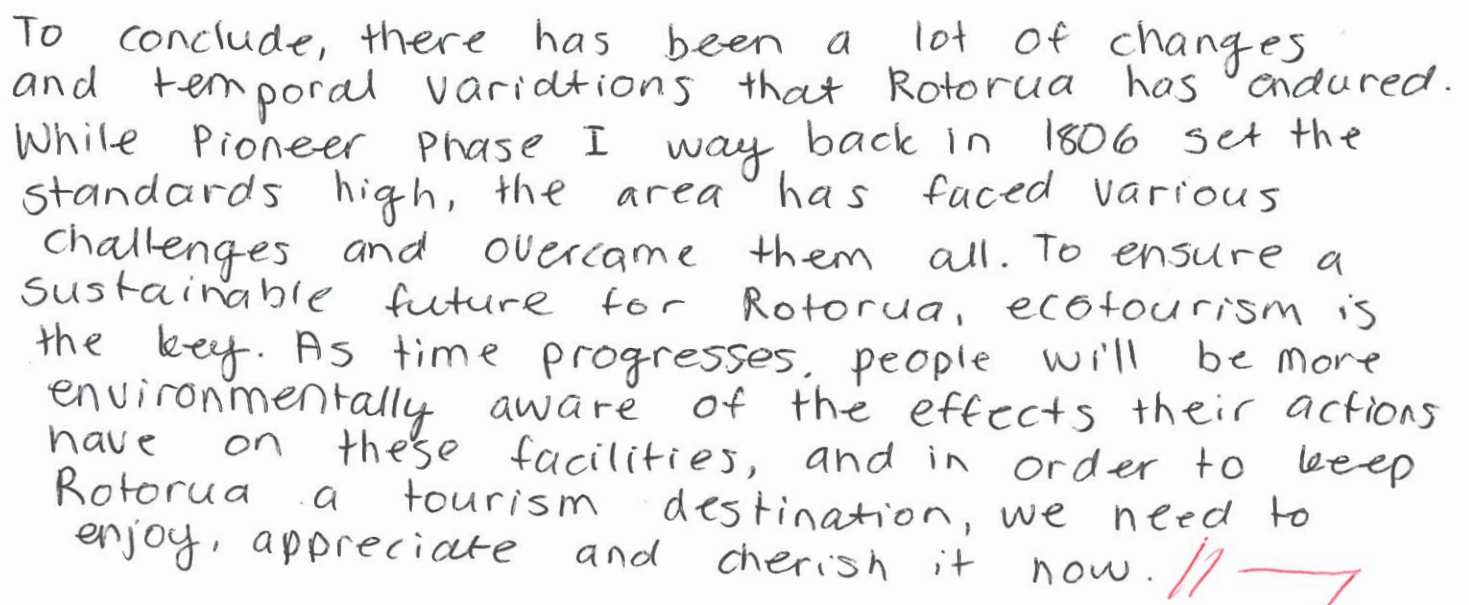 To conclude, there has been a lot of changes
and temporal variations that Rotorua has endured.
While Pioneer Phase I way back in 1806 set the
standards high, the area has faced various
challenges and overcame them all. To ensure a
sustainable future for Rotorua, ecotourism is
the key. As time progresses, people will be more
environmentally aware of the effects their actions
have on these facilities, and in order to keep
Rotorua a tourism destination, we need to
enjoy, appreciate and cherish it now.